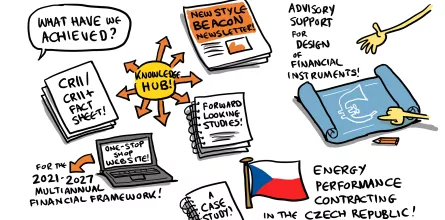 WHAT HAVE WE
ACHIEVED?
NEW STYLE
BEACON
NEWSLETTER!
ADVISORY
SUPPORT
FOR
DESIGN
OF
FINANCIAL
INSTRUMENTS!
CRII/
CRII+
FACT
SHEET!
KNOWLEDGE
HUB!
FORWARD
LOOKING
STUDIES!
ONE-STOP
SHOP
WEBSITE!
FOR THE
2021-2027
MULTIANNUAL
FINANCIAL FRAMEWORK!
A
CASE
STUDY!
ENERGY
PERFORMANCE
CONTRACTING
IN THE CZECH REPUBLIC!